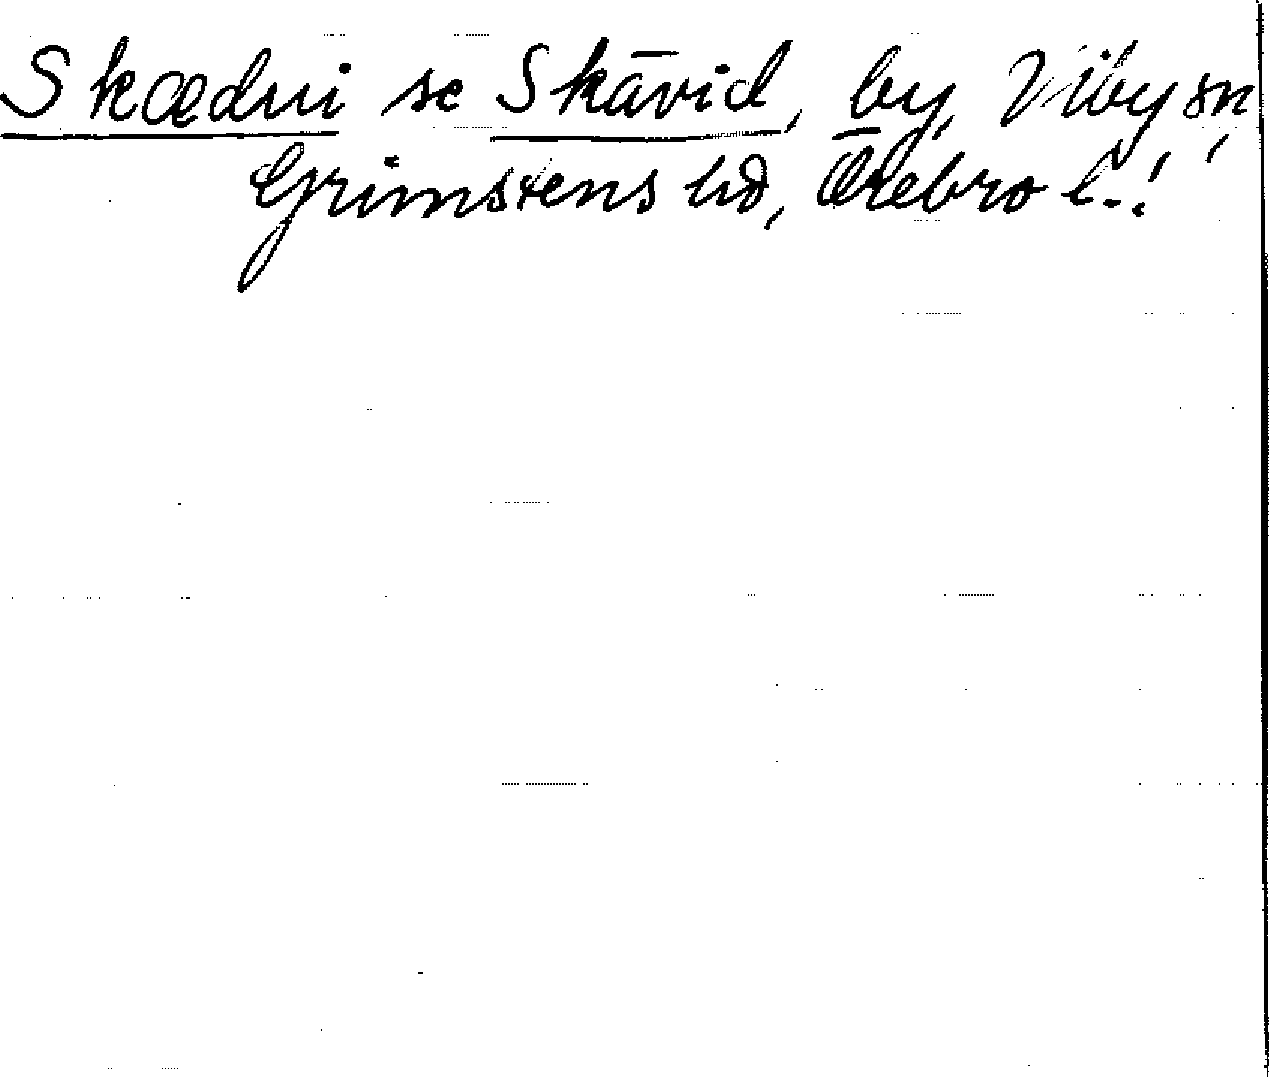 Skædui se Skävid, by, Viby sn,
Grimstens hd, Örebro l.!